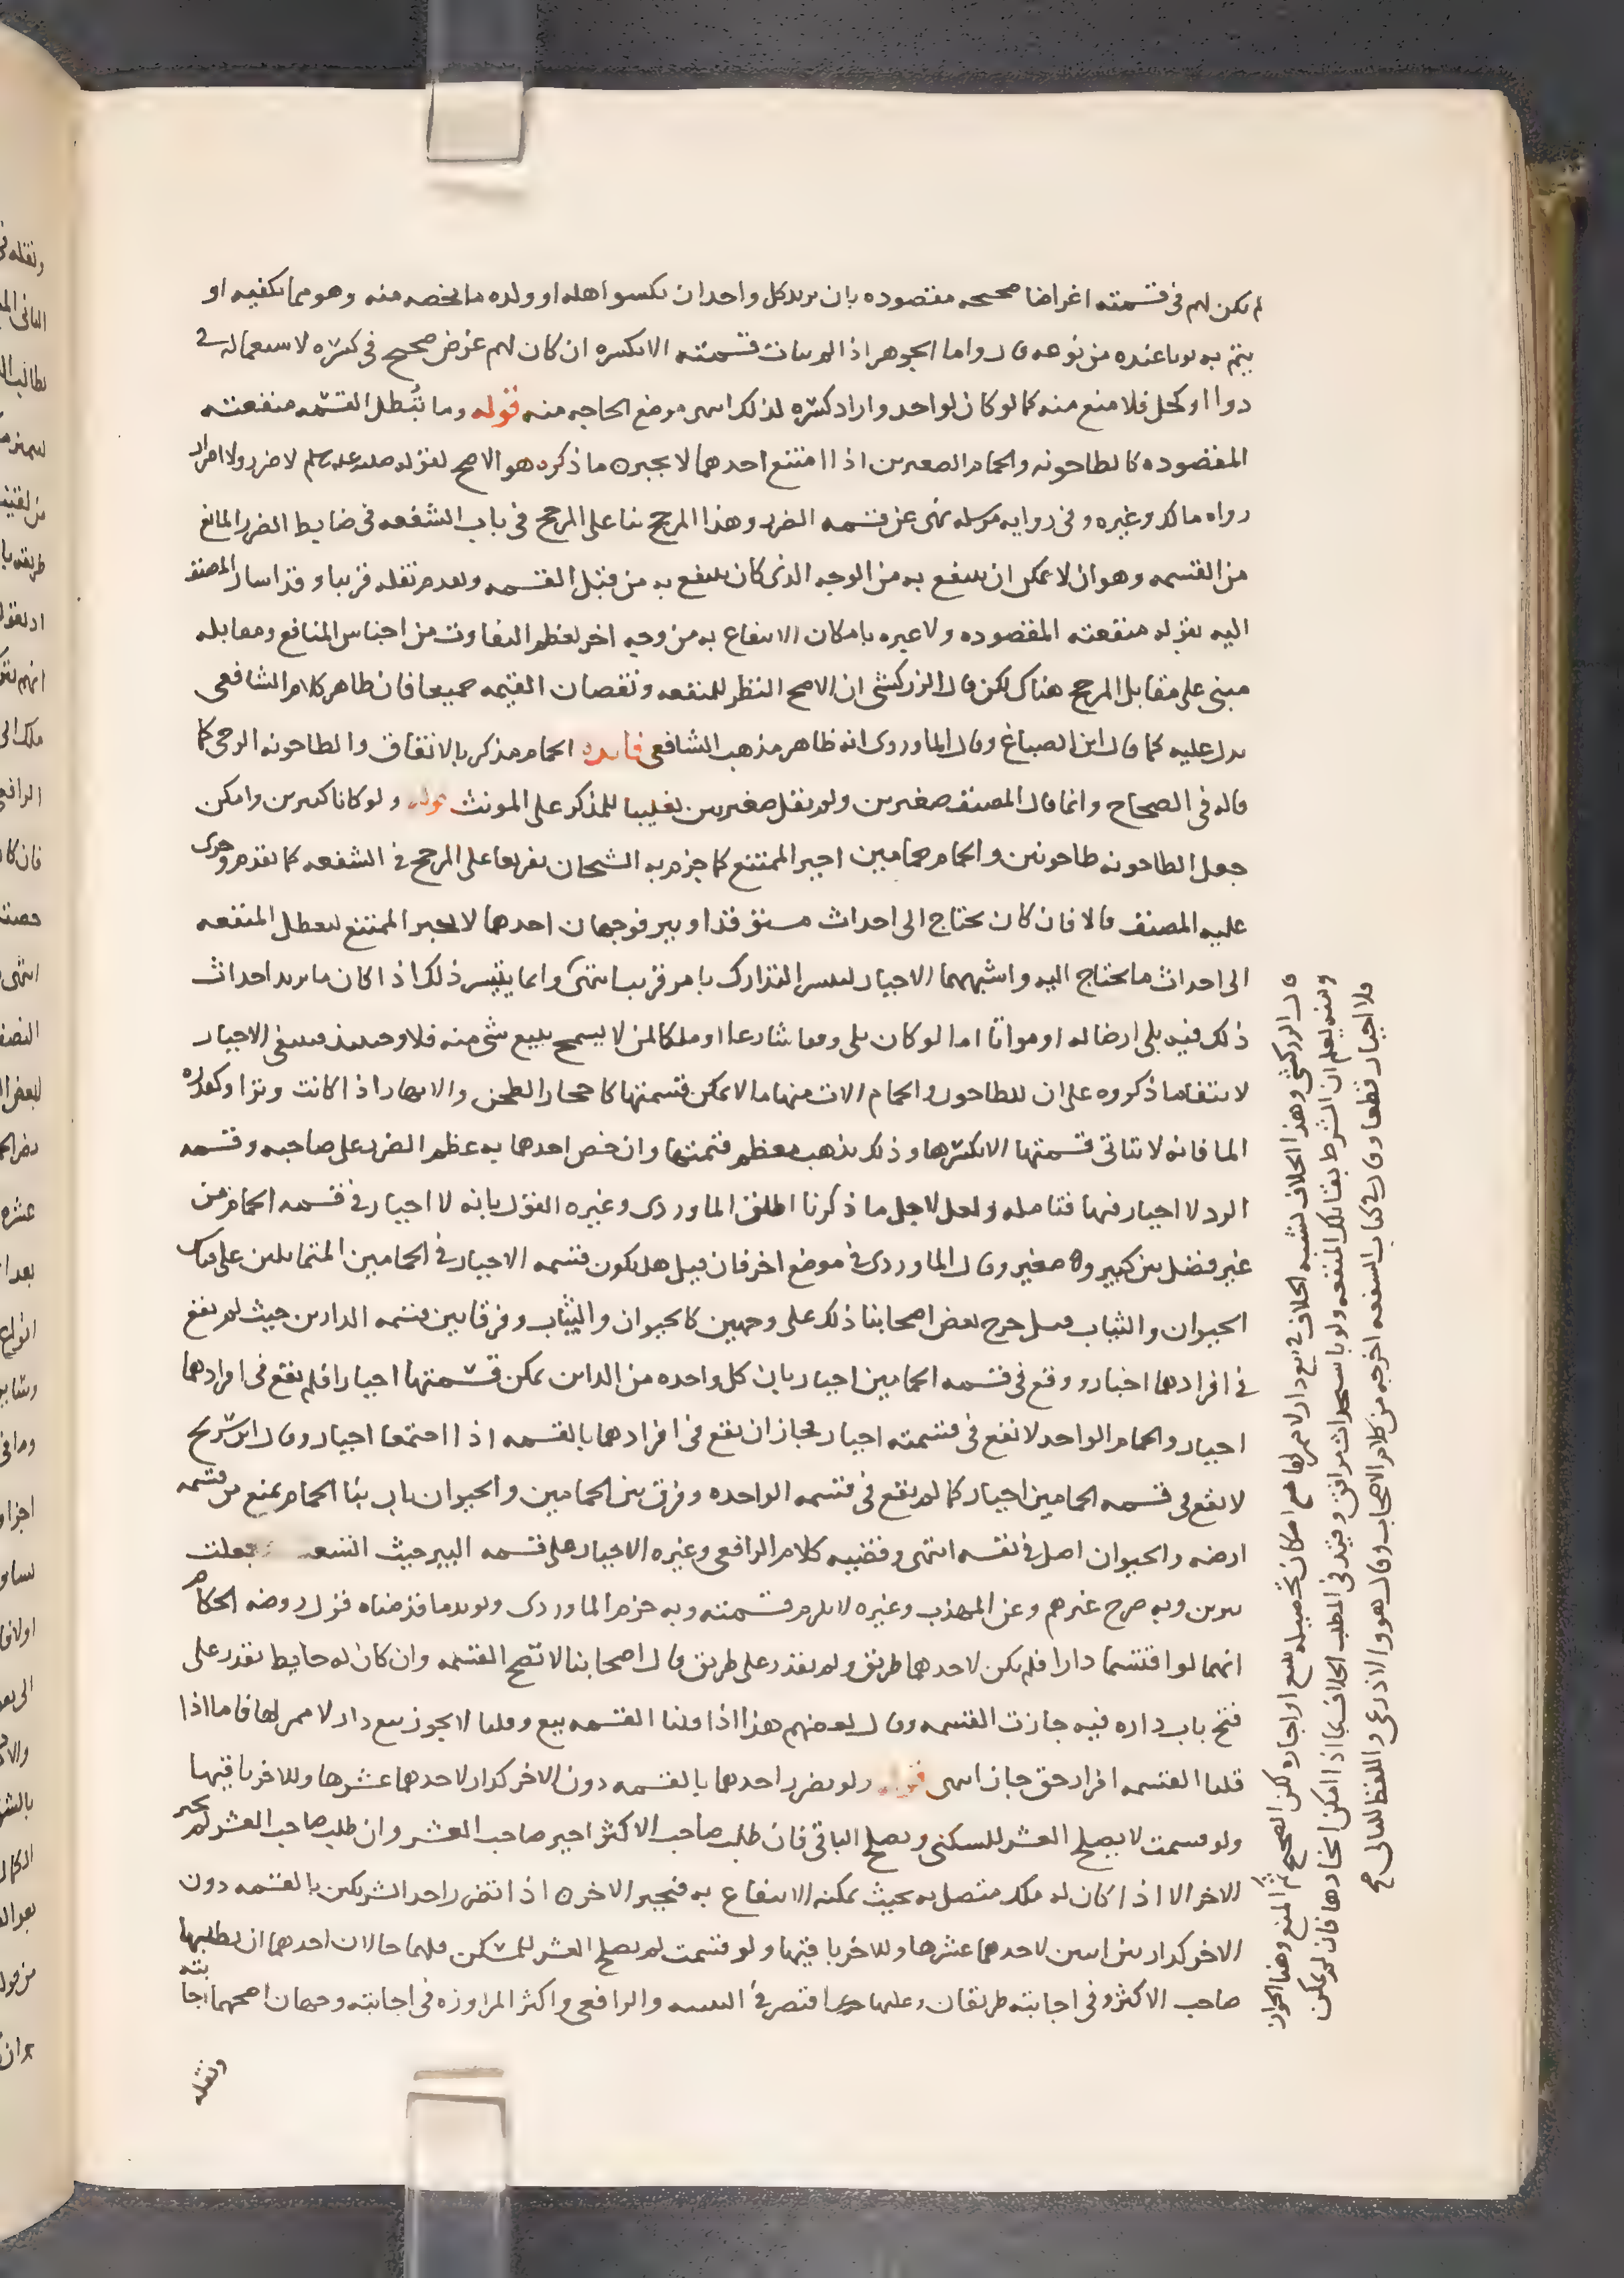 لم يكن لهم فى قسمته اغراضا صحيحه مقصوده بان يريد كل واحد ان يكسو اهله او ولده ما يخصه منه وهو مما يكفيه او
يتم به ثوبا عنده من نوعه قال واما الجوهر اذا لم يتات قسمته الا بكسره ان كان لهم غرض صحيح فى كسره لاستعماله فى
دوا او كحل فلا منع منه كما لو كان لواحد واراد كسره لذلك انتهى موضع الحاجه منه قوله وما تبطل القسمه منفعته
المقصوده كالطاحونه والحمام الصغيرين اذا امتنع احدهما لا يجبره ما ذكره هو الاصح لقوله صلى الله عليه وسلم لا ضرر ولا اضرار
رواه مالك وغيره وفى روايه مرسله نهى عن قسمه الضرر وهذا المرجح بنا على المرجح فى باب الشفعه فى ضابط الضرر المانع
من القسمه وهو ان لا يمكن ان ينتفع به من الوجه الذى كان ينتفع به من قبل القسمه وتقدم نقله قريبا وقد اشار المصنف
اليه بقوله منفعته المقصوده ولا عبره بامكان الانتفاع به من وجه اخر لعظم التفاوت من اجناس المنافع ومقابله
مبنى على مقابل المرجح هناك لكن قال الزركشى ان الاصح النظر للمنفعه ونقصان القيمه جميعا فان ظاهر كلام الشافعى
يدل عليه كما قال ابن الصباغ وقال الماوردى انه ظاهر مذهب الشافعى فايده الحمام مذكر بالاتفاق والطاحونه الرحى كما
قاله فى الصحاح وانما قال المصنف صغيرين ولم يقل صغيرتين تغليبا للمذكر على المونث قوله ولو كانا كبيرين وامكن
جعل الطاحونه طاحونين والحمام حمامين اجبر الممتنع كما جزم به الشيخان تفريعا على المرجح فى الشفعه كما تقدم وجرى
عليه المصنف قالا فان كان يحتاج الى احداث مستوقد او بير فوجهان احدهما لا يجبر الممتنع لتعطل المنفعه
الى احداث ما يحتاج اليه واشبههما الاجبار لتيسر التدارك بامر قريب انتهى وانما يتيسر ذلك اذا كان ما يريد احداث
ذلك فيه يلى ارضا له او مواتا اما لو كان يلى وقفا شارعا او ملكا لمن لا يسمح ببيع شى منه فلا وحينئذ فينبغى الاجبار
لانتفا ما ذكروه على ان للطاحون والحمام الات منها ما لا يمكن قسمتها كاحجار الطحن والابهار اذا كانت وترا وكقدره
الما فانه لا تتاتى قسمتها الا بكسرها وذلك يذهب معظم قيمتها وان خص احدهما به عظم الضرر على صاحبه وقسمه
الرد لا اجبار فيها فتامله ولعل لاجل ما ذكرنا اطلق الماوردى وغيره القول بانه لا اجبار فى قسمه الحمام من
غير فصل بين كبير وصغير وقال الماوردى فى موضع اخر فان قيل هل يكون قسمه الاجبار فى الحمامين المتماثلين على قياس
الحيوان والثياب قيل خرج بعض اصحابنا ذلك على وجهين كالحيوان والثياب وفرقا بين قسمه الدارين حيث لم تقع
فى افرادهما اجبار ووقع فى قسمه الحمامين اجبار بان كل واحده من الدارين يمكن قسمتها اجبارا فلم يقع فى افرادهما
اجبار والحمام الواحد لا تقع فى قسمته اجبار فجاز ان يقع فى افرادهما بالقسمه اذا اجتمعا اجبار وقال ابن سريج
لا يقع فى قسمه الحمامين اجبار كما لم يقع فى قسمه الواحده وفرق بين الحمامين والحيوان بان بنا الحمام يمنع من قسمه
ارضه والحيوان اصل فى نفسه انتهى وقضيه كلام الرافعى وغيره الاجبار على قسمه البير حيث اتسعت جعلت
بيرين وبه صرح غيرهم وعن المهذب وغيره لا يلزم قسمته وبه جزم الماوردى ويويد ما قدمناه قول روضه الحكام
انهما لو اقتسما دارا فلم يكن لاحدهما طريق ولم يقدر على طريق قال اصحابنا لا تصح القسمه وان كان له حايط يقدر على
فتح باب داره فيه جازت القسمه وقال بعضهم هذا اذا قلنا القسمه بيع وقلنا لا يجوز بيع دار لا ممر لها فاما اذا
قلنا القسمه افراز حق جاز انتهى قوله ولو تضرر احدهما بالقسمه دون الاخر كدار لاحدهما عشرها وللاخر باقيها
ولو قسمت لا يصلح العشر للسكنى ويصلح الباقى فان طلب صاحب الاكثر اجبر صاحب العشر وان طلب صاحب العشر لم يجبر
الاخر الا اذا كان له ملك متصل به بحيث يمكنه الانتفاع به فيجبر الاخر اذا تضرر احد الشريكين بالقسمه دون
الاخر كدار بين اثنين لاحدهما عشرها وللاخر باقيها ولو قسمت لم يصلح العشر للمسكن فلهما حالان احدهما ان يطلبها
صاحب الاكثر وفى اجابته طريقان وعليها جرى اقتصر فى التنبيه والرافعى واكثر المراوزه فى اجابته وجهان اصحهما اجابته
ونقله
قال الزركشى وهذا الخلاف يشبه الخلاف فى بيع دار لا ممر لها مع امكان تحصيله ببيع او اجاره لكن الصحيح ثم المنع وهنا الجواز
ومنه يعلم ان الشرط بقا تلك المنفعه ولو باستحداث مرافق وقيد فى المطلب الخلاف بما اذا امكن اتخاذها فان لم يمكن
فلا اجبار قطعا وقال فى كتاب الشفعه اخرجه من كلام الاصحاب وقال هو والاذرعى واللفظ للثانى صح